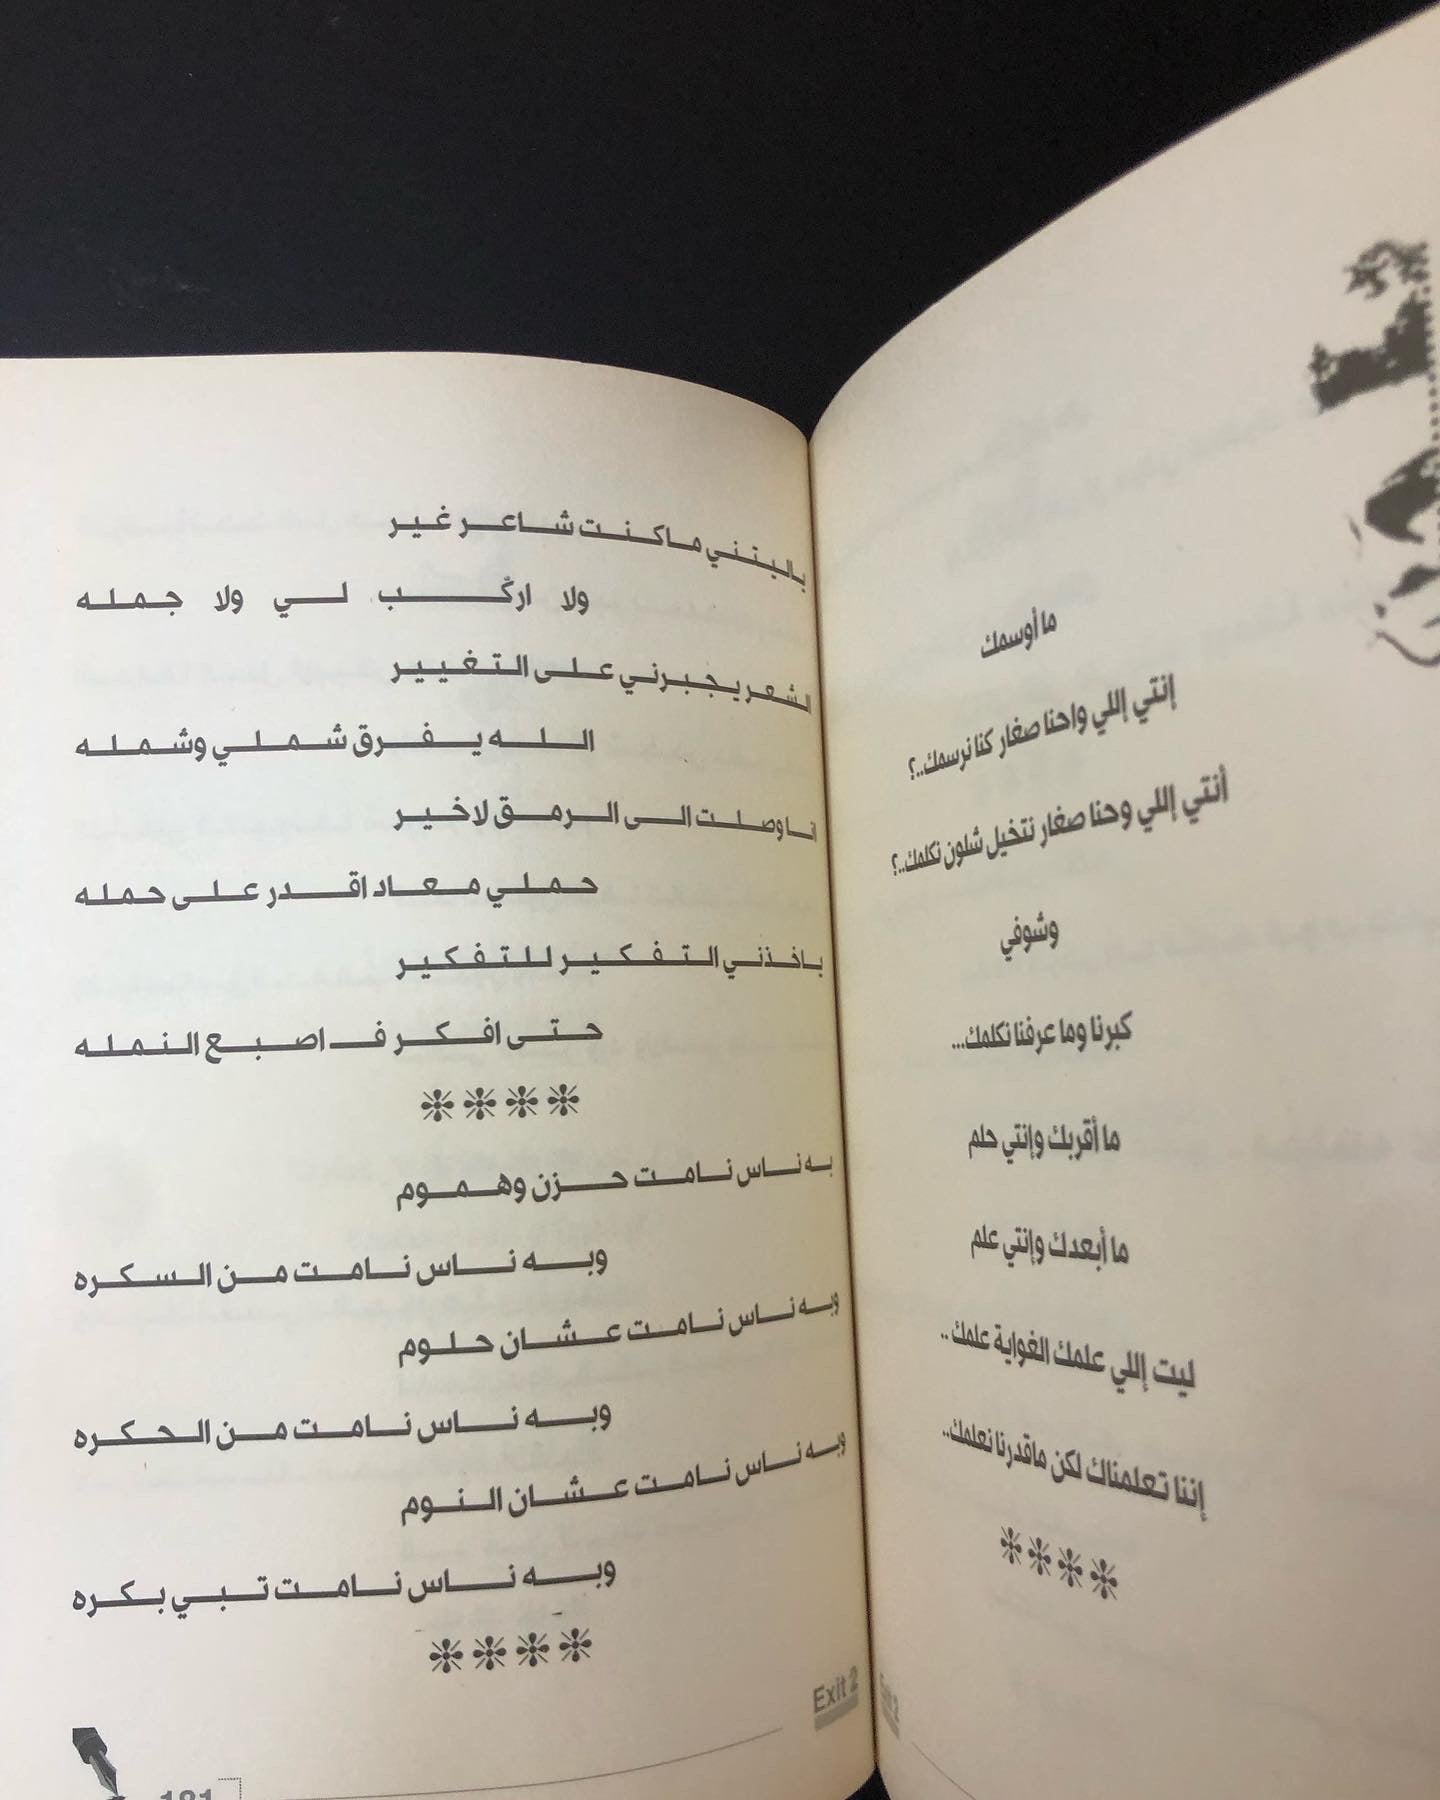 ما أوسمك
إنتي إللي واحنا صغار كنا نرسمك..؟
أنتي إللي وحنا صغار نتخيل شلون نكلمك..؟
وشوفي
كبرنا وما عرفنا نكلمك...
ما أقربك وإنتي حلم
ما أبعدك وإنتي علم
ليت إللي علمك الغواية علمك..
إننا تعلمناك لكن ماقدرنا نعلمك..
ياليتني ماكنت شاعر غير
ولا اركّب لي ولا جمله
الشعر يجبرني على التغيير
الله يفرق شملي وشمله
انا وصلت الى الرمق لاخير
حملي معاد اقدر على حمله
ياخذني التفكير للتفكير
حتى افكر ف اصبع النمله
به ناس نامت حزن وهموم
وبه ناس نامت من السكره
وبه ناس نامت عشان حلوم
وبه ناس نامت من الحكره
وبه ناس نامت عشان النوم
وبه ناس نامت تبي بكره
Exit 2
181